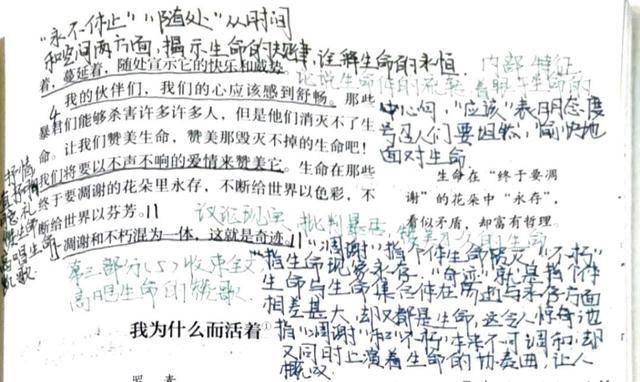 "永不休止""随处"从时间
和空间两方面，揭示生命的规律，诠释生命的永恒
内部特征
着，蔓延着，随处宣示它的快乐和威势。
4我的伙伴们，我们的心应该感到舒畅。那些
暴君们能够杀害许多许多人，但是他们消灭不了生
命。让我们赞美生命，赞美那毁灭不掉的生命吧！
我们将要以不声不响的爱情来赞美它。生命在那些
终于要凋谢的花朵里永存，不断给世界以色彩，不
断给世界以芬芳。
凋谢和不朽混为一体，这就是奇迹。
中心句，"应该"表明态度
号召人们要坦然，愉快地
面对生命
生命在"终于要凋
谢"的花朵中"永存"，
看似矛盾，却富有哲理。
抒情
议论现实，批判暴君，赞美不朽的生命
第三部分(5)收束全文
高唱生命的赞歌
"凋谢"指个体生命的毁灭"不朽"
指生命现象永存。"奇迹"就是指个体
生命与生命集合体在所逝与永存方面
相差甚大，却又都是生命，这令人惊奇地
指"凋谢"和"不朽"本来不可调和，却
又同时上演着生命的协奏曲，让人
慨叹
我为什么而活着①
罗 素